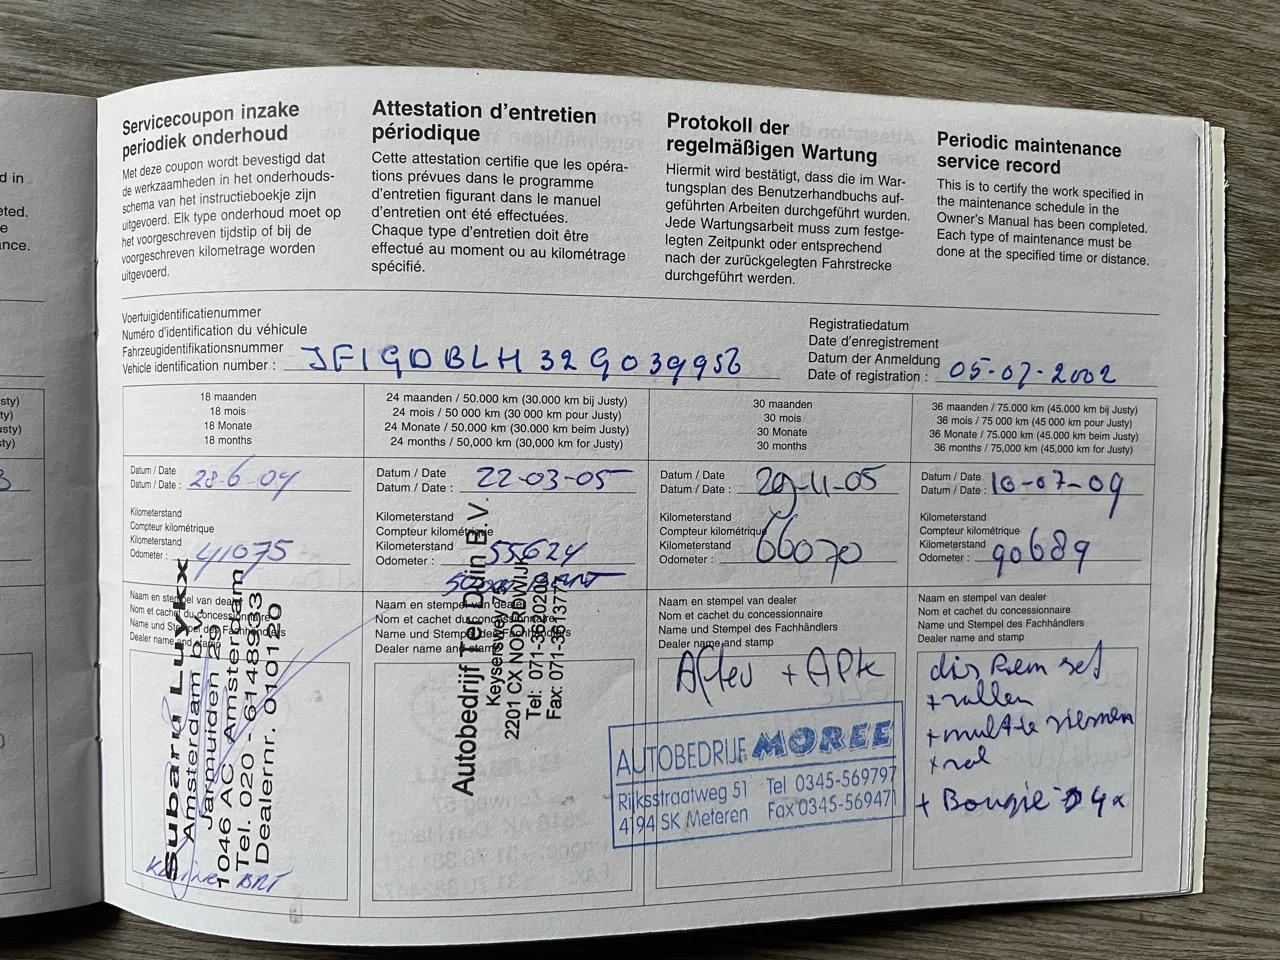 d in
eted.
e
nce.
sty)
ty)
usty)
ty)
3
Servicecoupon inzake
periodiek onderhoud
Met deze coupon wordt bevestigd dat
de werkzaamheden in het onderhouds-
schema van het instructieboekje zijn
uitgevoerd. Elk type onderhoud moet op
het voorgeschreven tijdstip of bij de
voorgeschreven kilometrage worden
uitgevoerd.
Attestation d'entretien
périodique
Cette attestation certifie que les opéra-
tions prévues dans le programme
d'entretien figurant dans le manuel
d'entretien ont été effectuées.
Chaque type d'entretien doit être
effectué au moment ou au kilométrage
spécifié.
Protokoll der
regelmäßigen Wartung
Hiermit wird bestätigt, dass die im War-
tungsplan des Benutzerhandbuchs auf-
geführten Arbeiten durchgeführt wurden.
Jede Wartungsarbeit muss zum festge-
legten Zeitpunkt oder entsprechend
nach der zurückgelegten Fahrstrecke
durchgeführt werden.
Periodic maintenance
service record
This is to certify the work specified in
the maintenance schedule in the
Owner's Manual has been completed.
Each type of maintenance must be
done at the specified time or distance.
Voertuigidentificatienummer
Numéro d'identification du véhicule
Fahrzeugidentifikationsnummer
Vehicle identification number : JF1GDBLH32G039956
Registratiedatum
Date d'enregistrement
Datum der Anmeldung
Date of registration : 05-07-2002
18 maanden
18 mois
18 Monate
18 months
24 maanden / 50.000 km (30.000 km bij Justy)
24 mois / 50 000 km (30 000 km pour Justy)
24 Monate / 50.000 km (30.000 km beim Justy)
24 months / 50,000 km (30,000 km for Justy)
30 maanden
30 mois
30 Monate
30 months
36 maanden / 75.000 km (45.000 km bij Justy)
36 mois / 75 000 km (45 000 km pour Justy)
36 Monate / 75.000 km (45.000 km beim Justy)
36 months / 75,000 km (45,000 km for Justy)
Datum / Date
Datum / Date : 28-6-04
Kilometerstand
Compteur kilométrique
Kilometerstand
Odometer : 41075
Naam en stempel van dealer
Nom et cachet du concessionnaire
Name und Stempel des Fachhändlers
Dealer name and stamp
Subaru Luykx
Amsterdam b.v.
Jarmuiden 29
1046 AC Amsterdam
Tel. 020 - 6148933
Dealernr. 010120
BRT
Datum / Date
Datum / Date : 22-03-05
Kilometerstand
Compteur kilométrique
Kilometerstand
Odometer : 55624
Naam en stempel van dealer
Nom et cachet du concessionnaire
Name und Stempel des Fachhändlers
Dealer name and stamp
Autobedrijf Ter Duin B.V.
2201 CX NOORDWIJK
Datum / Date
Datum / Date : 29-11-05
Kilometerstand
Compteur kilométrique
Kilometerstand
Odometer : 66070
Naam en stempel van dealer
Nom et cachet du concessionnaire
Name und Stempel des Fachhändlers
Dealer name and stamp
+ APK
AUTOBEDRIJF MOREE
Rijksstraatweg 51 Tel 0345-569797
4194 SK Meteren Fax 0345-569471
Datum / Date
Datum / Date : 10-07-09
Kilometerstand
Compteur kilométrique
Kilometerstand
Odometer : 90689
Naam en stempel van dealer
Nom et cachet du concessionnaire
Name und Stempel des Fachhändlers
Dealer name and stamp
dis Riem set
+ rollen
+ multie riemen
+ rol
+ Bougie 4x